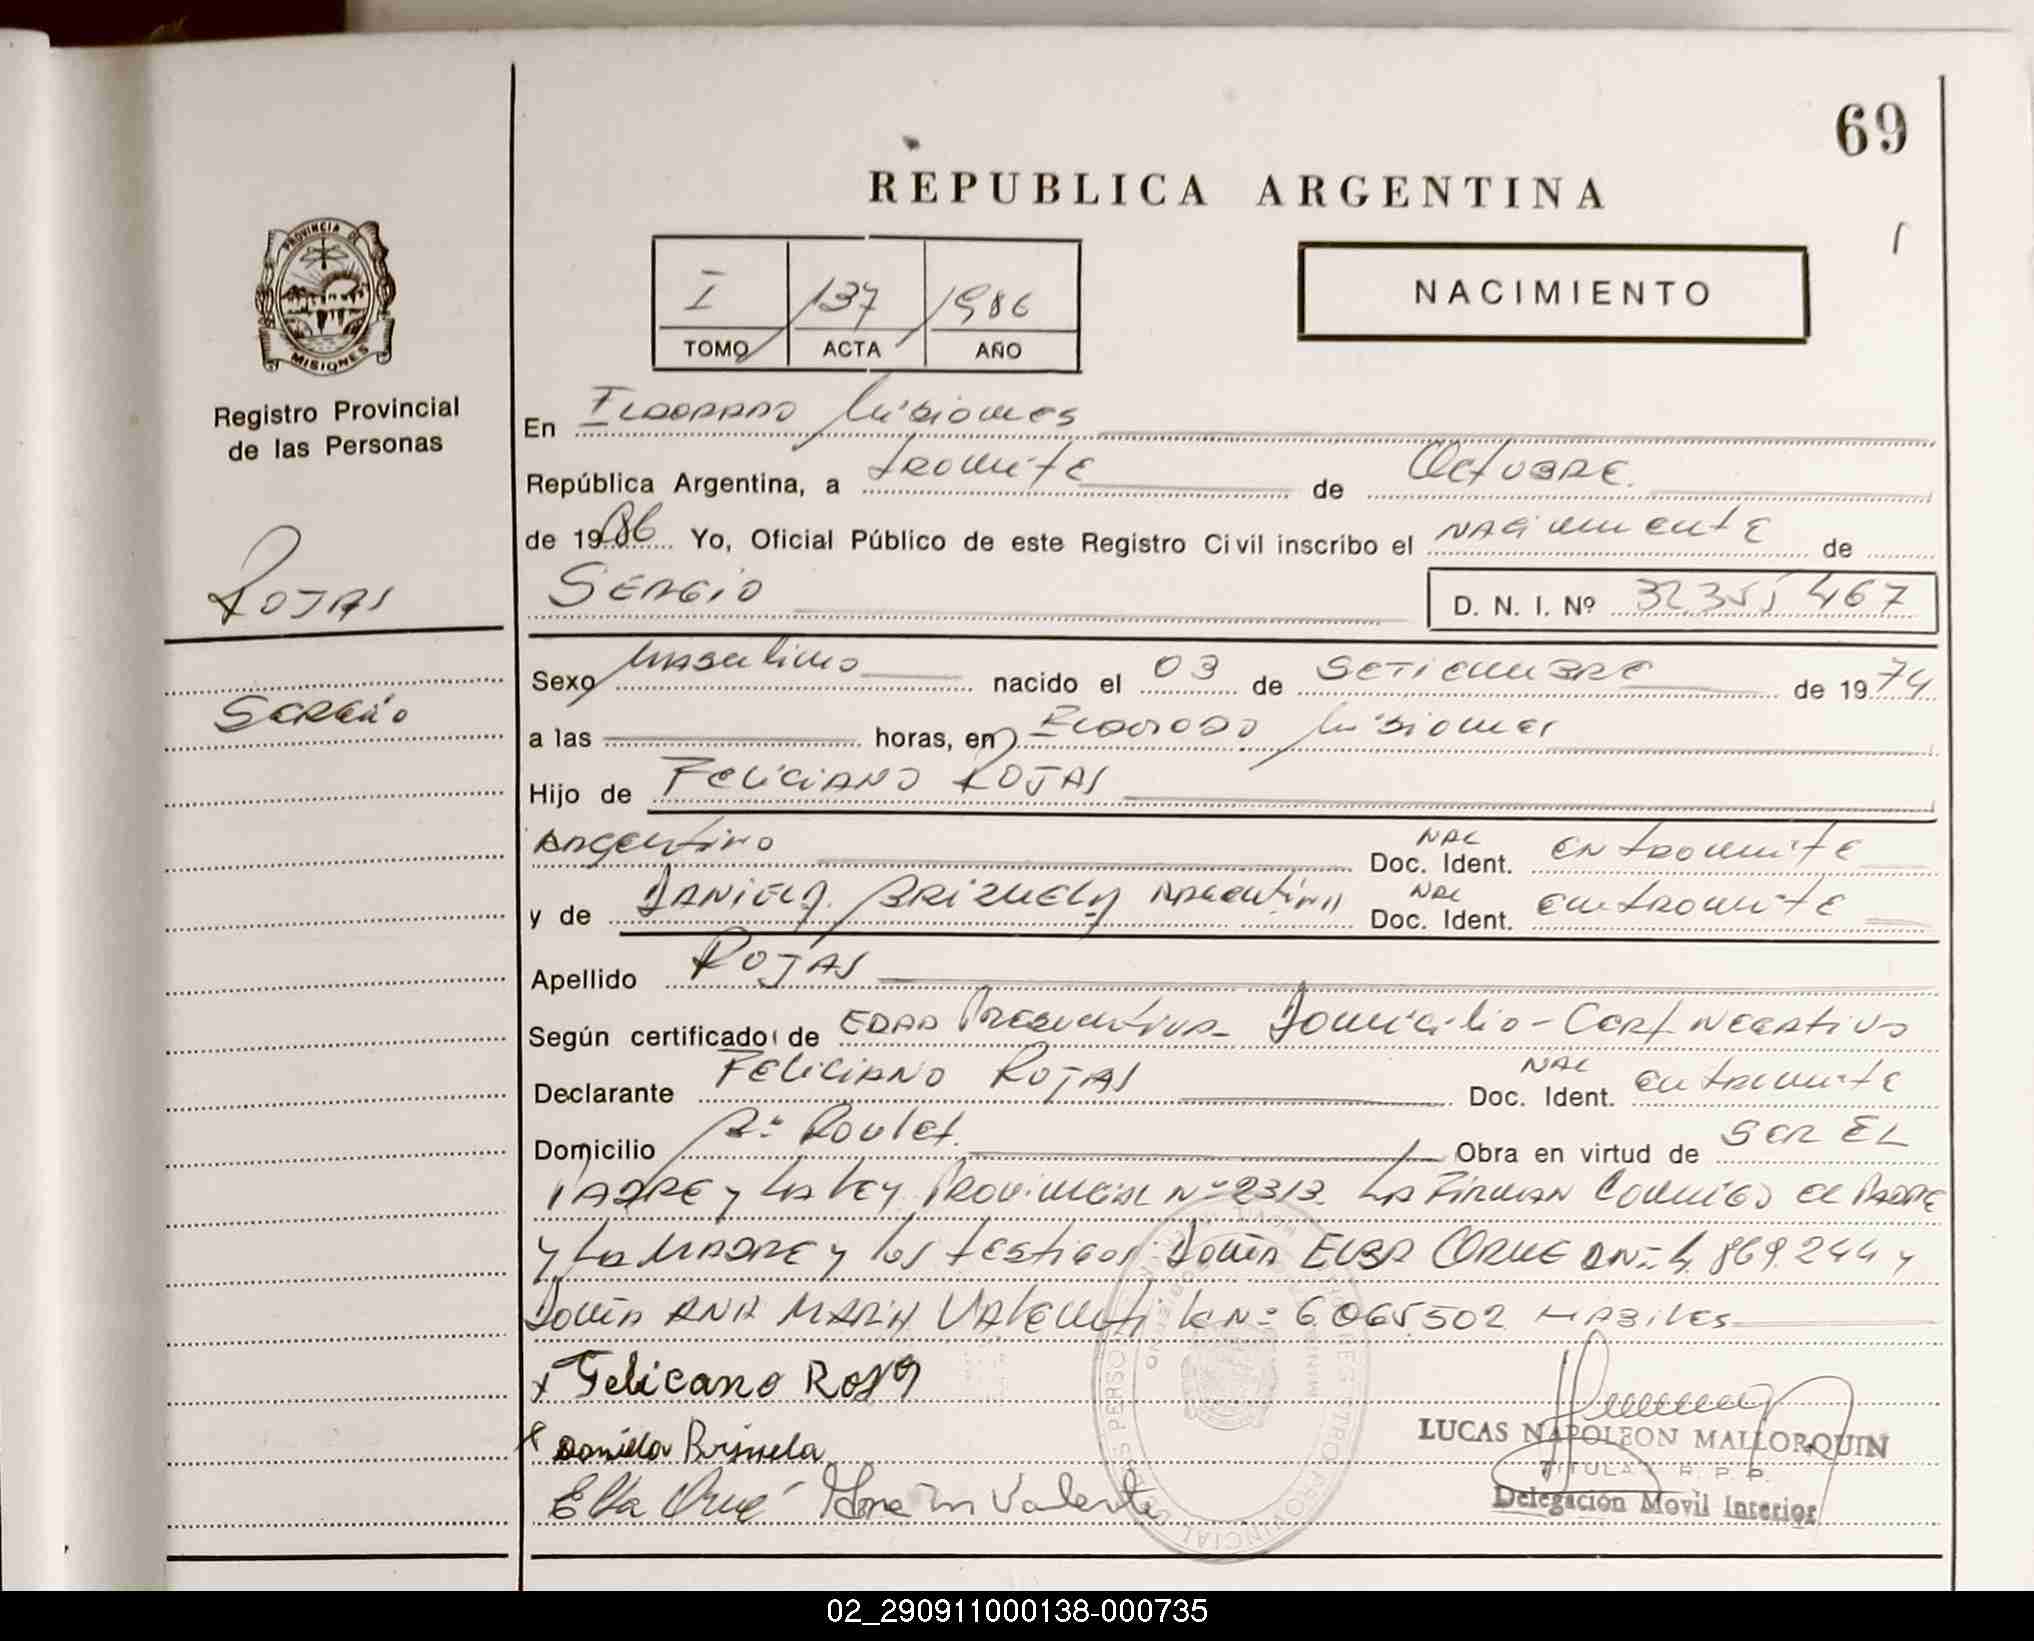 69
REPUBLICA ARGENTINA
PROVINCIA DE
MISIONES
Registro Provincial
de las Personas
I 137 1986
TOMO ACTA AÑO
NACIMIENTO
En ELDORADO Misiones
República Argentina, a de OCTUBRE.
de 1986 Yo, Oficial Público de este Registro Civil inscribo el NACIMIENTO de
ROJAS
SERGIO D. N. I. Nº 32.355.467
Sexo MASCULINO nacido el 03 de SETIEMBRE de 1974
SERGIO
a las horas, en ELDORADO Misiones
Hijo de FELICIANO ROJAS
Argentino NAC Doc. Ident. EN TRAMITE
y de DANIELA BRIZUELA ARGENTINA NAC Doc. Ident. EN TRAMITE
Apellido ROJAS
Según certificado de EDAD PRESUNTIVA - DOMICILIO - CERT NEGATIVO
Declarante FELICIANO ROJAS NAC Doc. Ident. EN TRAMITE
Domicilio Bº Roulet. Obra en virtud de SER EL
PADRE y LA LEY PROVINCIAL Nº 2313. LA FIRMAN CONMIGO EL PADRE
y LA MADRE y LOS TESTIGOS: DOÑA ELBA ORUE Nº 4.869.244 y
DOÑA ANA MARIA VALENTI Nº 6.065.502 HABILES
x Felicano Roja
x Daniela Brisuela
Elba Orué Valente
LUCAS NAPOLEON MALLORQUIN
TITULAR R. P. P.
Delegación Movil Interior
REGISTRO PROVINCIAL DE LAS PERSONAS
02_290911000138-000735